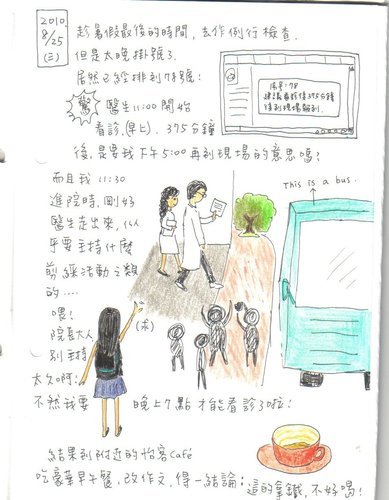 2010.
8/25
(三)
趁暑假最後的時間,去作例行檢查.
但是太晚掛號了.
居然已經排到78號:
診号:78
建議看診後375分鐘
後到現場報到.
驚
醫生11:00開始
看診.(早上). 375分鐘
後,是要我下午5:00再到現場的意思嗎?
而且我11:30
進院時,剛好
醫生走出來,似
乎要主持什麼
剪綵活動之類
的....
This is a bus.
喂!
院長大人
別主持
太久啊!
(求)
不然我要
晚上7點才能看診了啦!
結果到附近的怡客café
吃豪華早午餐,改作文,得一結論:
這的拿鐵,不好喝!